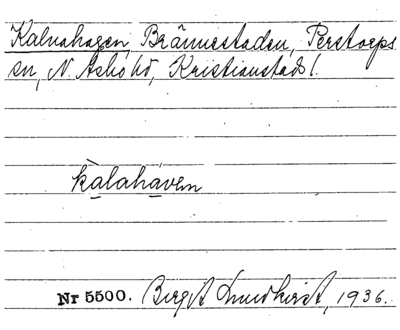 Kalvahagen, Brännestaden, Perstorps
sn, N. Åsbo hd, Kristianstads l.
kàlahàven
Nr 5500. Birgit Lundkvist, 1936.